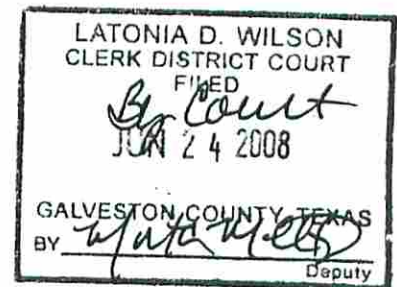 LATONIA D. WILSON
CLERK DISTRICT COURT
FILED
By Court
JUN 24 2008
GALVESTON COUNTY, TEXAS
BY
Deputy